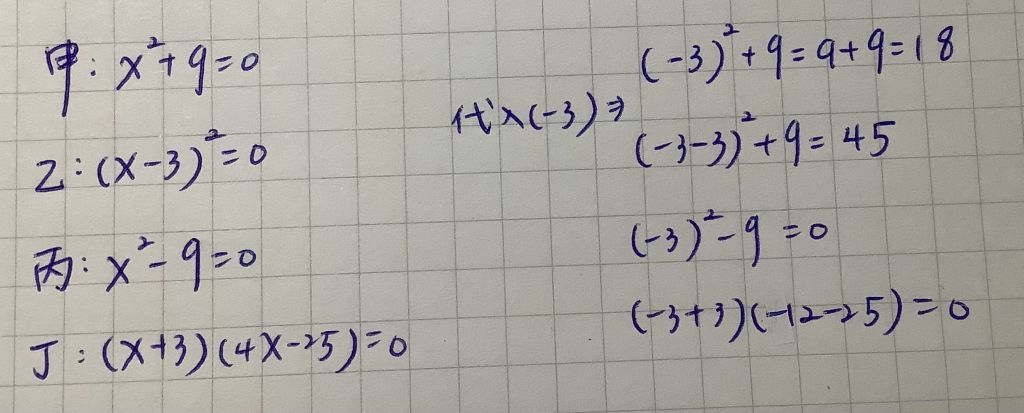 甲: x²+9=0
乙: (x-3)²=0
丙: x²-9=0
丁: (x+3)(4x-25)=0
代入(-3)⇒
(-3)²+9=9+9=18
(-3-3)²+9=45
(-3)²-9=0
(-3+3)(-12-25)=0